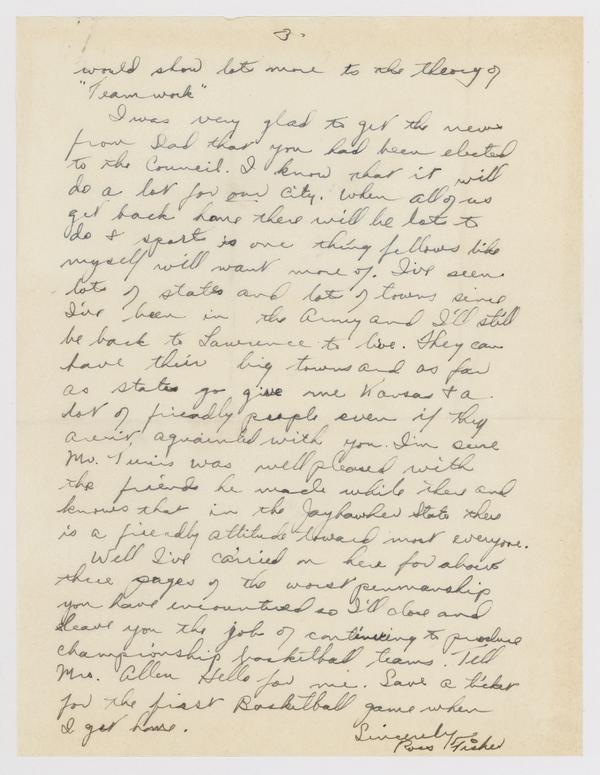 3.
would show lots more to the theory of
"Teamwork"
I was very glad to get the news
from Dad that you had been elected
to the Council. I know that it will
do a lot for our city. When all of us
get back home there will be lots to
do & sports is one thing fellows like
myself will want more of. I've seen
lots of states and lots of towns since
I've been in the Army and I'll still
be back to Lawrence to live. They can
have their big towns and as far
as states go give me Kansas & a
lot of friendly people even if they
aren't aquainted with you. I'm sure
Mr. Tunis was well pleased with
the friends he made while there and
knows that in the Jayhawker State there
is a friendly attitude toward most everyone.
Well I've carried on here for about
three pages of the worst penmanship
you have encountered so I'll close and
leave you the job of continuing to produce
championship basketball teams. Tell
Mrs. Allen Hello for me. Save a ticket
for the first Basketball game when
I get home.
Sincerely,
Fisher